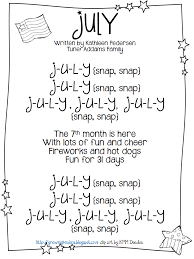 JULY
Written by Kathleen Pedersen
Tune: Addams Family
j-u-l-y {snap, snap}
j-u-l-y {snap, snap}
j-u-l-y, j-u-l-y, j-u-l-y
{snap, snap}
The 7th month is here
With lots of fun and cheer
Fireworks and hot dogs
Fun for 31 days
j-u-l-y {snap, snap}
j-u-l-y {snap, snap}
j-u-l-y, j-u-l-y, j-u-l-y
{snap, snap}
clip art by